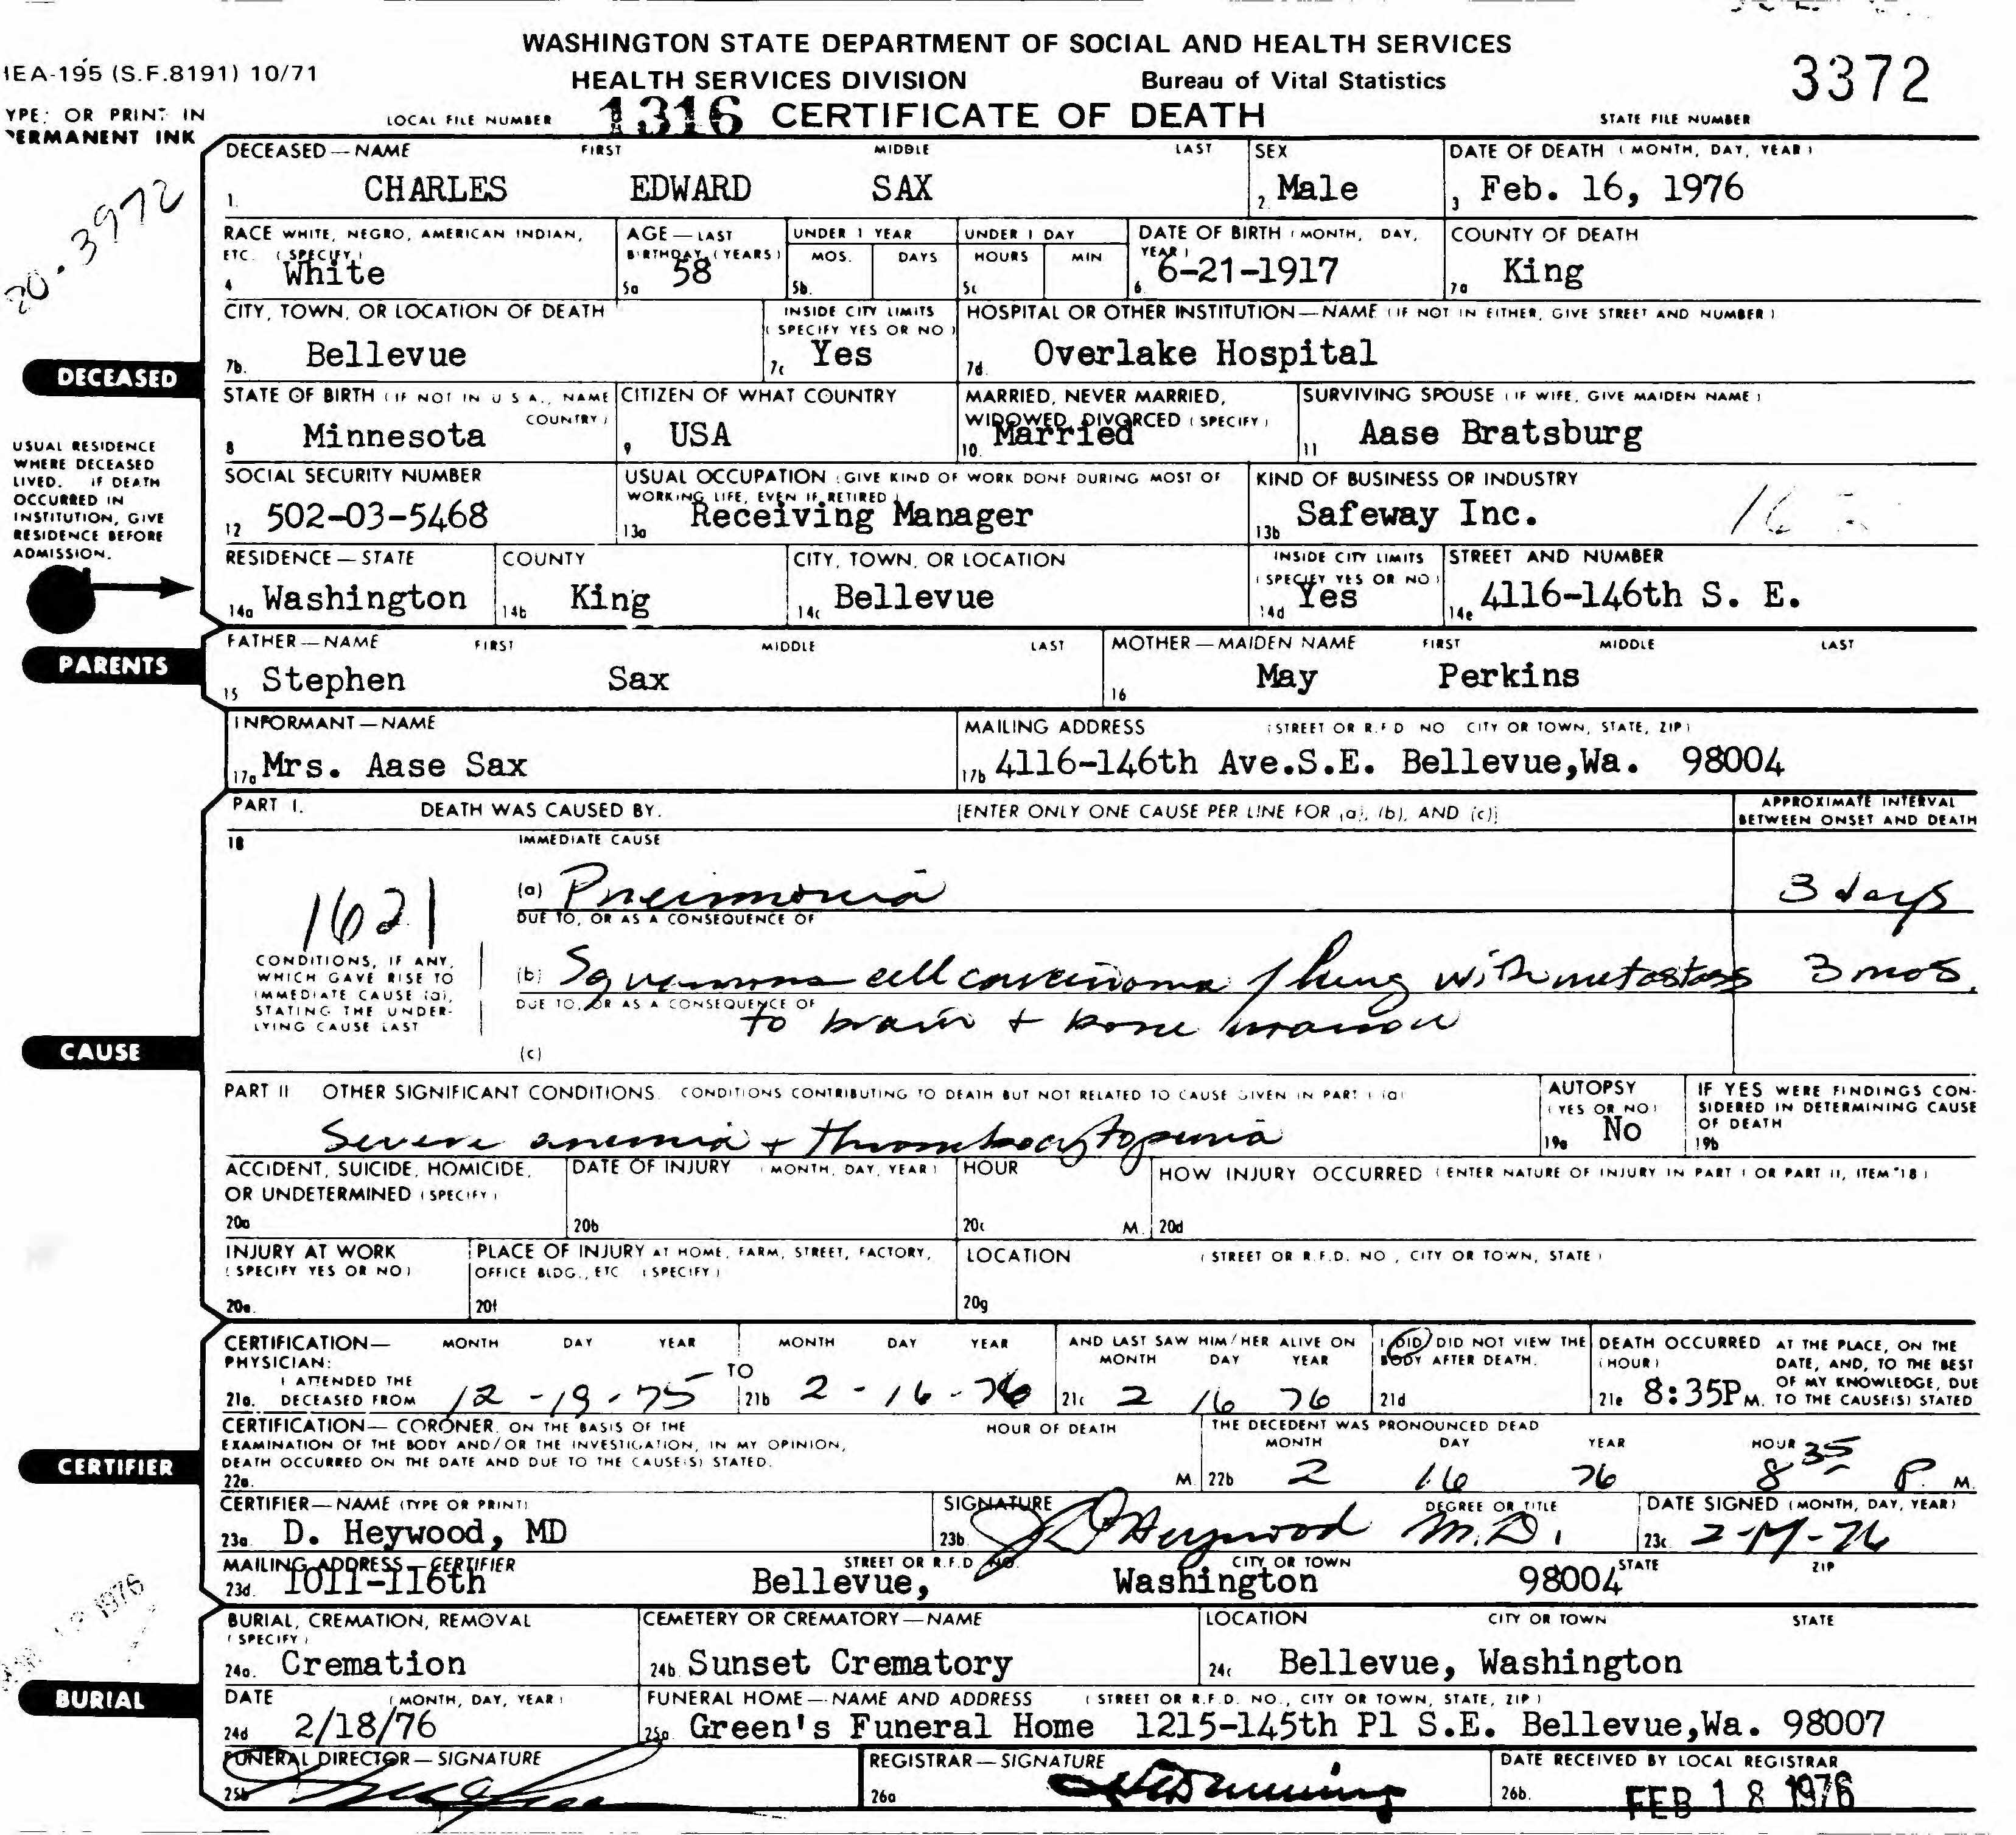 WASHINGTON STATE DEPARTMENT OF SOCIAL AND HEALTH SERVICES
IEA-195 (S.F.8191) 10/71
HEALTH SERVICES DIVISION Bureau of Vital Statistics
3372
YPE: OR PRINT IN PERMANENT INK
LOCAL FILE NUMBER 1316 CERTIFICATE OF DEATH STATE FILE NUMBER
DECEASED—NAME FIRST MIDDLE LAST SEX DATE OF DEATH (MONTH, DAY, YEAR)
1. CHARLES EDWARD SAX 2. Male 3 Feb. 16, 1976
20-3972
RACE WHITE, NEGRO, AMERICAN INDIAN, ETC. (SPECIFY) AGE—LAST BIRTHDAY (YEARS) UNDER 1 YEAR UNDER 1 DAY DATE OF BIRTH (MONTH, DAY, YEAR) COUNTY OF DEATH
MOS. DAYS HOURS MIN
4 White 5a 58 5b. 5c 6. 6-21-1917 7a King
CITY, TOWN, OR LOCATION OF DEATH INSIDE CITY LIMITS (SPECIFY YES OR NO) HOSPITAL OR OTHER INSTITUTION—NAME (IF NOT IN EITHER, GIVE STREET AND NUMBER)
7b. Bellevue 7c Yes 7d. Overlake Hospital
DECEASED
STATE OF BIRTH (IF NOT IN U S A., NAME COUNTRY) CITIZEN OF WHAT COUNTRY MARRIED, NEVER MARRIED, WIDOWED, DIVORCED (SPECIFY) SURVIVING SPOUSE (IF WIFE, GIVE MAIDEN NAME)
8 Minnesota 9 USA 10. Married 11 Aase Bratsburg
USUAL RESIDENCE WHERE DECEASED LIVED. IF DEATH OCCURRED IN INSTITUTION, GIVE RESIDENCE BEFORE ADMISSION.
SOCIAL SECURITY NUMBER USUAL OCCUPATION (GIVE KIND OF WORK DONE DURING MOST OF WORKING LIFE, EVEN IF RETIRED) KIND OF BUSINESS OR INDUSTRY
12 502-03-5468 13a Receiving Manager 13b Safeway Inc.
RESIDENCE—STATE COUNTY CITY, TOWN, OR LOCATION INSIDE CITY LIMITS (SPECIFY YES OR NO) STREET AND NUMBER
14a Washington 14b King 14c Bellevue 14d Yes 14e 4116-146th S. E.
PARENTS
FATHER—NAME FIRST MIDDLE LAST MOTHER—MAIDEN NAME FIRST MIDDLE LAST
15 Stephen Sax 16 May Perkins
INFORMANT—NAME MAILING ADDRESS (STREET OR R.F.D NO CITY OR TOWN, STATE, ZIP)
17a Mrs. Aase Sax 17b 4116-146th Ave.S.E. Bellevue,Wa. 98004
PART I. DEATH WAS CAUSED BY. [ENTER ONLY ONE CAUSE PER LINE FOR (a), (b), AND (c)] APPROXIMATE INTERVAL BETWEEN ONSET AND DEATH
18 IMMEDIATE CAUSE
1621
(a) Pneumonia 3 days
DUE TO, OR AS A CONSEQUENCE OF
CONDITIONS, IF ANY, WHICH GAVE RISE TO IMMEDIATE CAUSE (a), STATING THE UNDERLYING CAUSE LAST
(b) Squamous cell carcinoma / lung with metastases 3 mos.
DUE TO, OR AS A CONSEQUENCE OF
to brain + bone marrow
CAUSE
(c)
PART II OTHER SIGNIFICANT CONDITIONS. CONDITIONS CONTRIBUTING TO DEATH BUT NOT RELATED TO CAUSE GIVEN IN PART I (a) AUTOPSY (YES OR NO) IF YES WERE FINDINGS CONSIDERED IN DETERMINING CAUSE OF DEATH
Severe anemia + thrombocytopenia 19a No 19b
ACCIDENT, SUICIDE, HOMICIDE, OR UNDETERMINED (SPECIFY) DATE OF INJURY (MONTH, DAY, YEAR) HOUR HOW INJURY OCCURRED (ENTER NATURE OF INJURY IN PART I OR PART II, ITEM 18)
20a 20b 20c M. 20d
INJURY AT WORK (SPECIFY YES OR NO) PLACE OF INJURY AT HOME, FARM, STREET, FACTORY, OFFICE BLDG., ETC (SPECIFY) LOCATION (STREET OR R.F.D. NO., CITY OR TOWN, STATE)
20e. 20f 20g
CERTIFICATION—PHYSICIAN: I ATTENDED THE DECEASED FROM MONTH DAY YEAR TO MONTH DAY YEAR AND LAST SAW HIM/HER ALIVE ON MONTH DAY YEAR I DID DID NOT VIEW THE BODY AFTER DEATH. DEATH OCCURRED (HOUR) AT THE PLACE, ON THE DATE, AND, TO THE BEST OF MY KNOWLEDGE, DUE TO THE CAUSE(S) STATED
21a. 12-19-75 21b 2-16-76 21c 2 16 76 21d 21e 8:35P M.
CERTIFIER
CERTIFICATION—CORONER. ON THE BASIS OF THE EXAMINATION OF THE BODY AND/OR THE INVESTIGATION, IN MY OPINION, DEATH OCCURRED ON THE DATE AND DUE TO THE CAUSE(S) STATED. HOUR OF DEATH THE DECEDENT WAS PRONOUNCED DEAD MONTH DAY YEAR HOUR
22a. M. 22b 2 16 76 8 35 P. M.
CERTIFIER—NAME (TYPE OR PRINT) SIGNATURE DEGREE OR TITLE DATE SIGNED (MONTH, DAY, YEAR)
23a. D. Heywood, MD 23b. D Heywood M.D. 23c.
MAILING ADDRESS—CERTIFIER STREET OR R.F.D NO. CITY OR TOWN STATE ZIP
23d. 1011-116th Bellevue, Washington 98004
BURIAL, CREMATION, REMOVAL (SPECIFY) CEMETERY OR CREMATORY—NAME LOCATION CITY OR TOWN STATE
24a. Cremation 24b. Sunset Crematory 24c Bellevue, Washington
BURIAL
DATE (MONTH, DAY, YEAR) FUNERAL HOME—NAME AND ADDRESS (STREET OR R.F.D. NO., CITY OR TOWN, STATE, ZIP)
24d 2/18/76 25a Green's Funeral Home 1215-145th Pl S.E. Bellevue,Wa. 98007
FUNERAL DIRECTOR—SIGNATURE REGISTRAR—SIGNATURE DATE RECEIVED BY LOCAL REGISTRAR
25b 26a 26b. FEB 18 1976